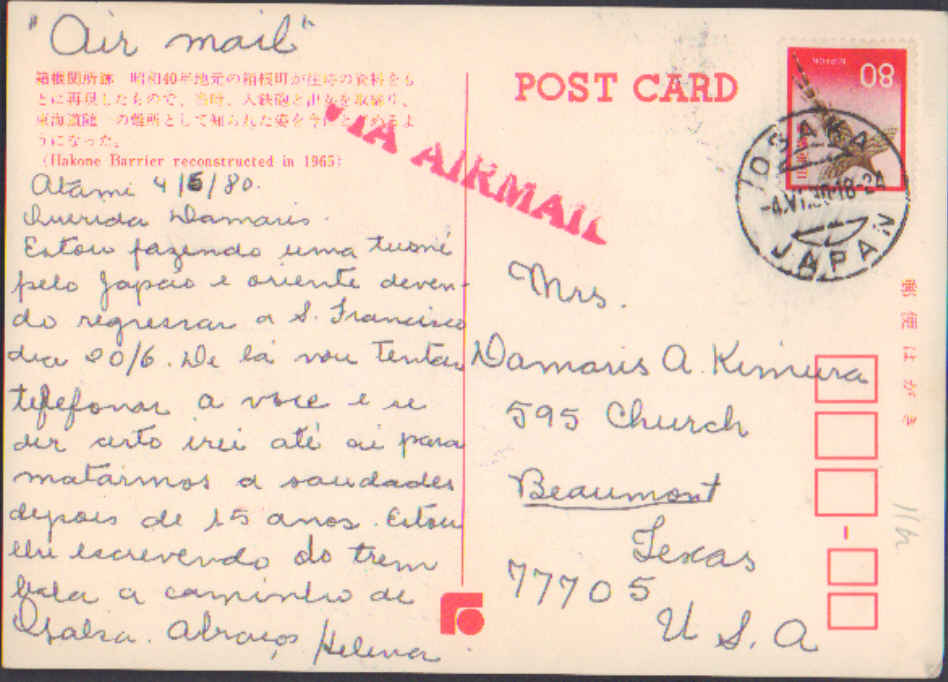 "Air mail"
箱根関所跡 昭和40年地元の箱根町が往時の資料をも
とに再現したもので、当時、入鉄砲と出女を取締り、
東海道随一の難所として知られた姿を今にとどめるよ
うになった。
(Hakone Barrier reconstructed in 1965)
Atami 4/6/80.
Querida Damaris.
Estou fazendo uma
pelo Japão e oriente deven-
do regressar a S. Francisco
dia 20/6. De lá vou tentar
telefonar a voce e se
der certo irei até aí para
matarmos a saudades
depois de 15 anos. Estou
lhe escrevendo do trem
bala a caminho de
Osaka. Abraços Helena
POST CARD
VIA AIRMAIL
80
NIPPON
OSAKA
-4.VI.80.18-24
JAPAN
郵便はがき
Mrs.
Damaris A. Kimura
595 Church
Beaumont
Texas
77705
U.S.A